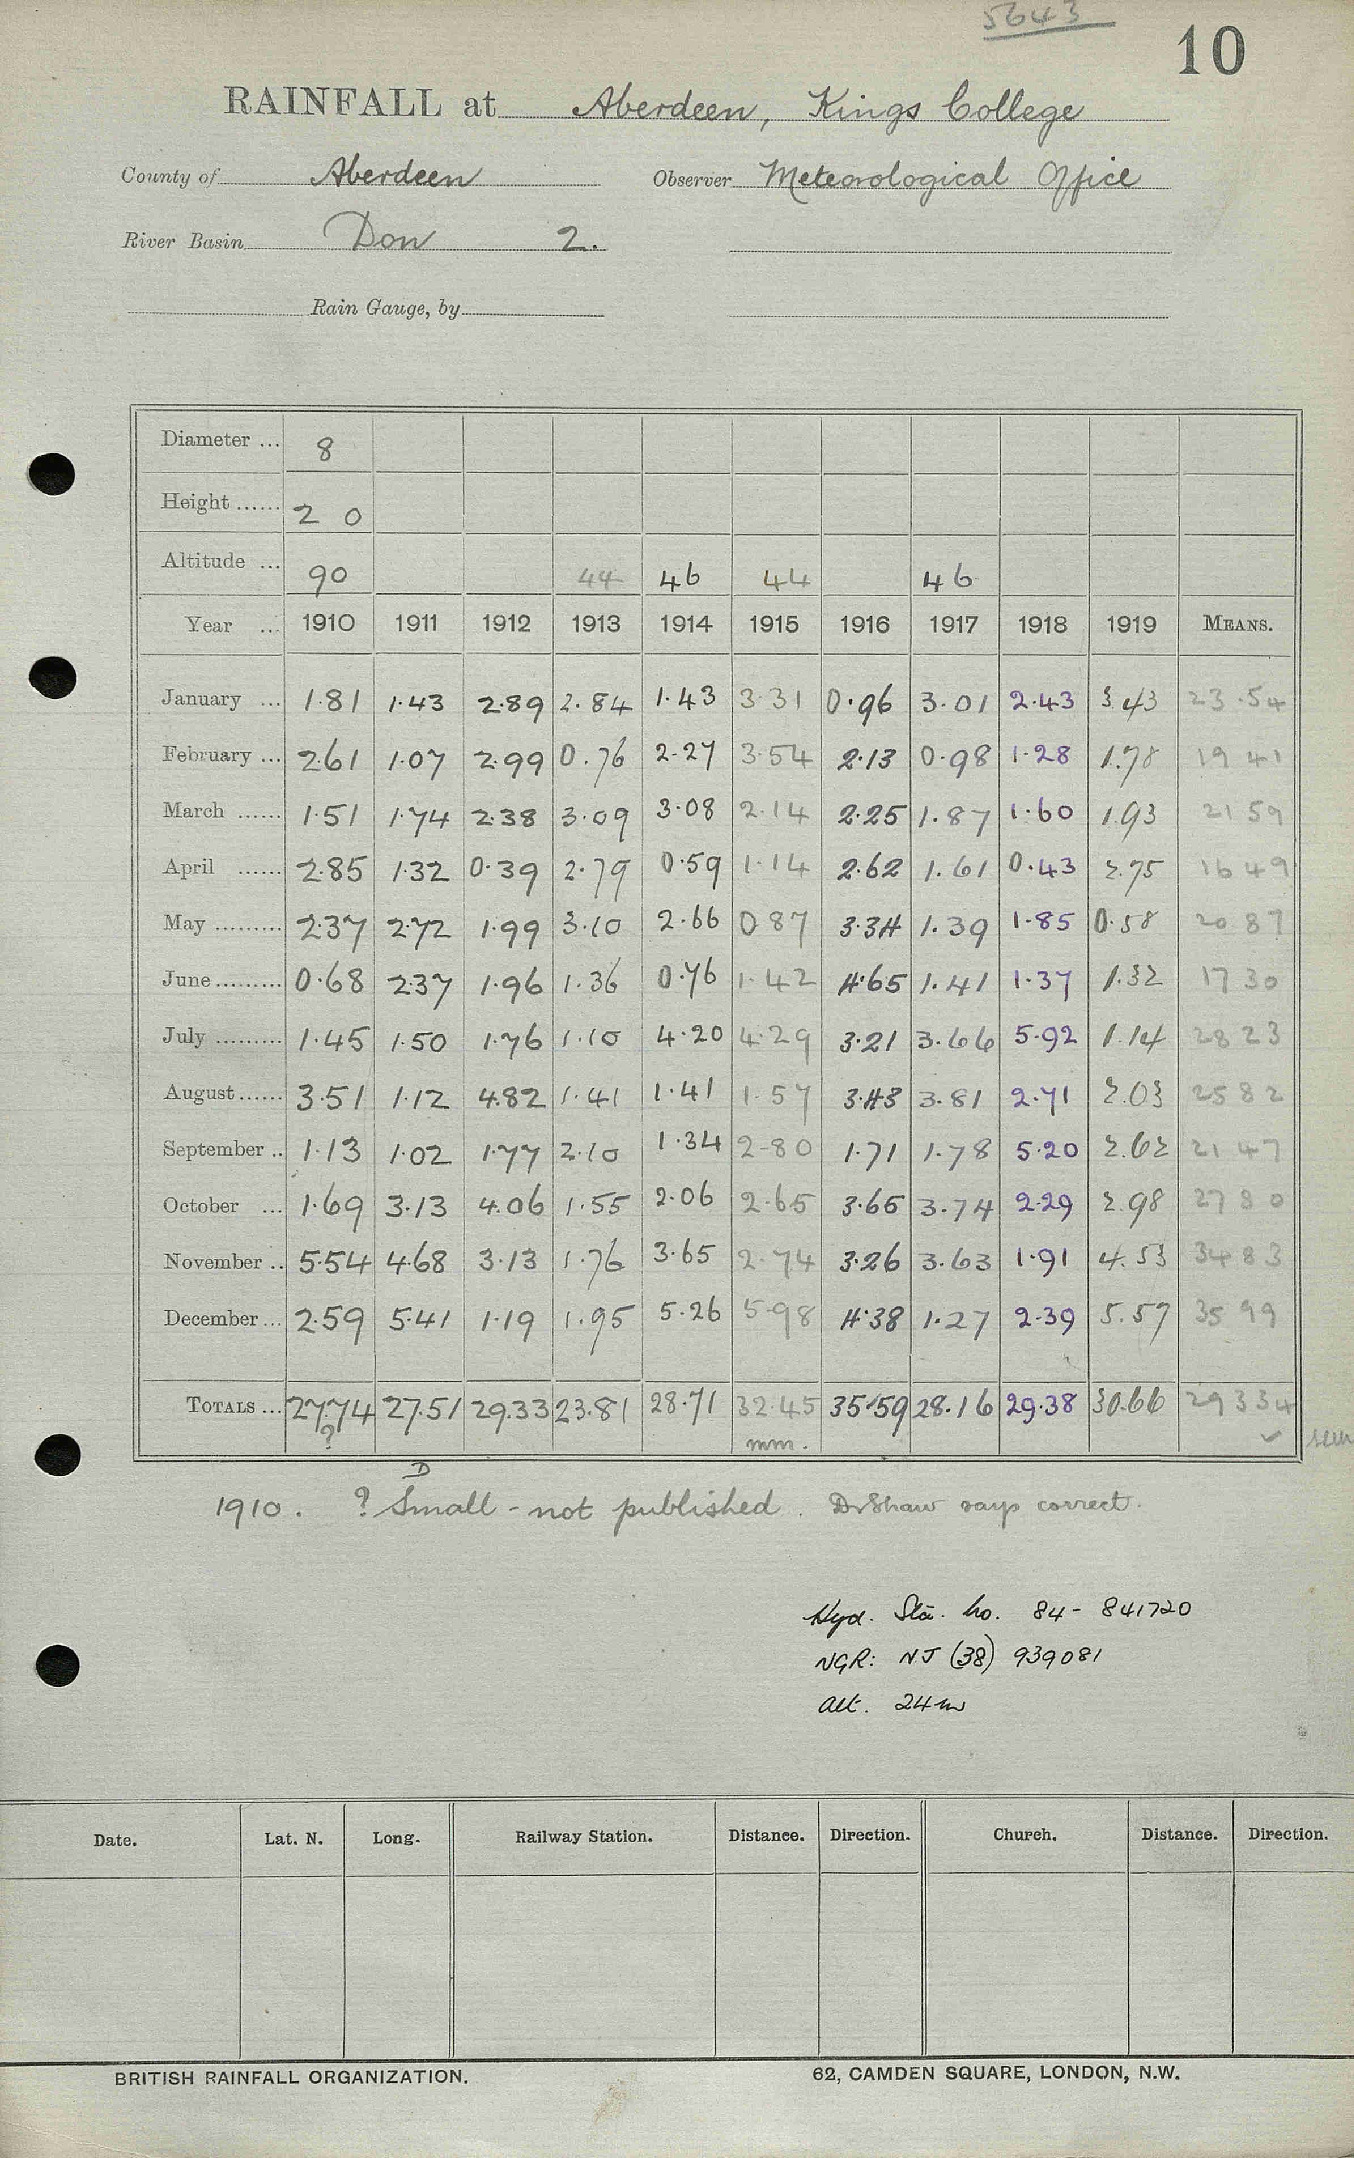 5643
10
RAINFALL at Aberdeen, Kings College
County of Aberdeen Observer Meteorological Office
River Basin Don 2.
Rain Gauge, by
Diameter ... 8
Height ...... 2 0
Altitude ... 90 44 46 44 46
Year ... 1910 1911 1912 1913 1914 1915 1916 1917 1918 1919 MEANS.
January ... 1.81 1.43 2.89 2.84 1.43 3.31 0.96 3.01 2.43 3.43 23.54
February ... 2.61 1.07 2.99 0.76 2.27 3.54 2.13 0.98 1.28 1.78 19 41
March ...... 1.51 1.74 2.38 3.09 3.08 2.14 2.25 1.87 1.60 1.93 21 59
April ...... 2.85 1.32 0.39 2.79 0.59 1.14 2.62 1.61 0.43 2.75 16 49
May ......... 2.37 2.72 1.99 3.10 2.66 0 87 3.34 1.39 1.85 0.58 20 87
June ......... 0.68 2.37 1.96 1.36 0.76 1.42 4.65 1.41 1.37 1.32 17 30
July ......... 1.45 1.50 1.76 1.10 4.20 4.29 3.21 3.66 5.92 1.14 28 23
August ...... 3.51 1.12 4.82 1.41 1.41 1.57 3.43 3.81 2.71 2.03 25 82
September .. 1.13 1.02 1.77 2.10 1.34 2.80 1.71 1.78 5.20 2.62 21 47
October ... 1.69 3.13 4.06 1.55 2.06 2.65 3.65 3.74 2.29 2.98 27 80
November .. 5.54 4.68 3.13 1.76 3.65 2.74 3.26 3.63 1.91 4.53 34 83
December ... 2.59 5.41 1.19 1.95 5.26 5.98 4.38 1.27 2.39 5.57 35 99
TOTALS ... 27.74 27.51 29.33 23.81 28.71 32.45 35.59 28.16 29.38 30.66 293 34
? mm.
D
1910. ? Small - not published. Dr Shaw says correct.
Hyd. Sta. No. 84 - 841720
NGR: NJ (38) 939081
Alt. 24m
Date. Lat. N. Long. Railway Station. Distance. Direction. Church. Distance. Direction.
BRITISH RAINFALL ORGANIZATION. 62, CAMDEN SQUARE, LONDON, N.W.